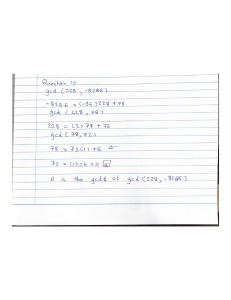 Question 10
gcd (228, -8266)
-8266 = (-36) 228 + 78
gcd (228, 78)
228 = (2) 78 + 72
gcd (78, 72)
78 = 72(1) + 6
72 = (12) 6 + 0
is the gcd of gcd (228, -8266)